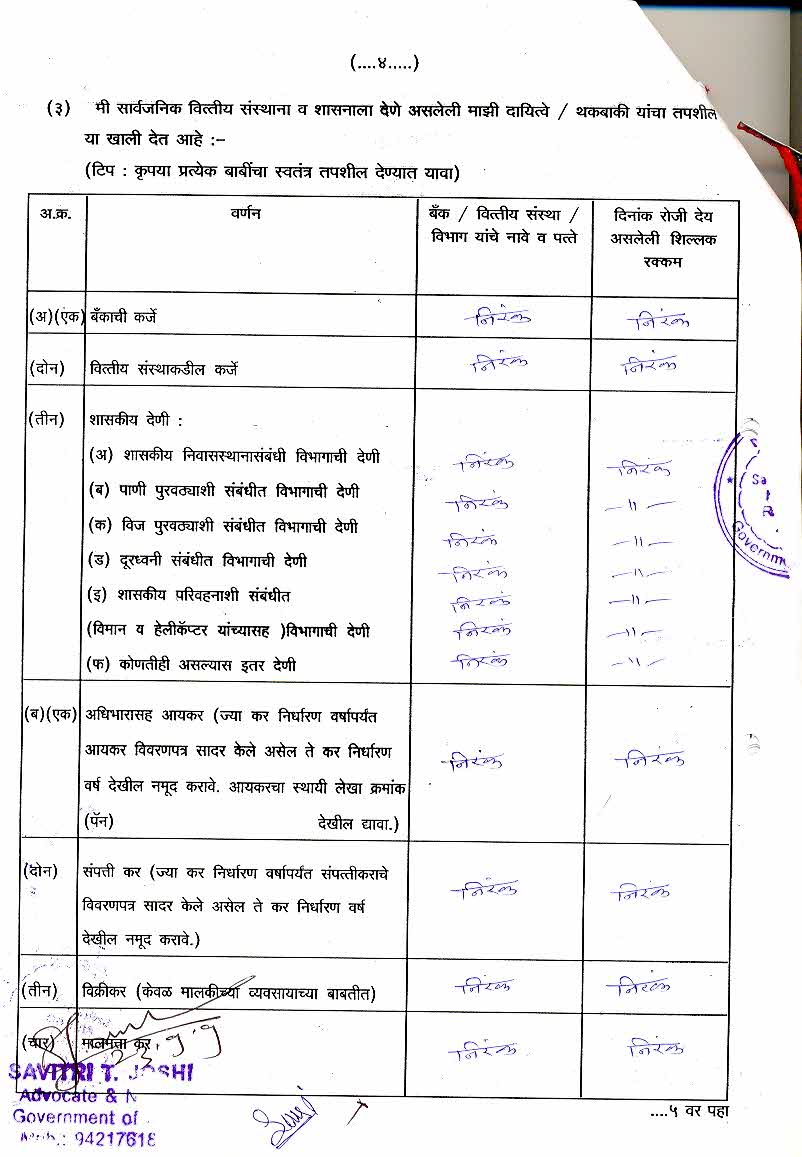 (....४.....)
(३) मी सार्वजनिक वित्तीय संस्थाना व शासनाला देणे असलेली माझी दायित्वे / थकबाकी यांचा तपशील
या खाली देत आहे :-
(टिप : कृपया प्रत्येक बाबींचा स्वतंत्र तपशील देण्यात यावा)
अ.क्र. वर्णन बँक / वित्तीय संस्था / दिनांक रोजी देय
विभाग यांचे नावे व पत्ते असलेली शिल्लक
रक्कम
(अ)(एक) बँकाची कर्जे निरंक निरंक
(दोन) वित्तीय संस्थाकडील कर्जे निरंक निरंक
(तीन) शासकीय देणी :
(अ) शासकीय निवासस्थानासंबंधी विभागाची देणी निरंक निरंक
(ब) पाणी पुरवठ्याशी संबंधीत विभागाची देणी निरंक —"—
(क) विज पुरवठ्याशी संबंधीत विभागाची देणी निरंक —"—
(ड) दूरध्वनी संबंधीत विभागाची देणी निरंक —"—
(इ) शासकीय परिवहनाशी संबंधीत निरंक —"—
(विमान व हेलीकॅप्टर यांच्यासह )विभागाची देणी निरंक —"—
(फ) कोणतीही असल्यास इतर देणी निरंक —"—
(ब)(एक) अधिभारासह आयकर (ज्या कर निर्धारण वर्षापर्यंत
आयकर विवरणपत्र सादर केले असेल ते कर निर्धारण निरंक निरंक
वर्ष देखील नमूद करावे. आयकरचा स्थायी लेखा क्रमांक
(पॅन) देखील द्यावा.)
(दोन) संपत्ती कर (ज्या कर निर्धारण वर्षापर्यंत संपत्तीकराचे
विवरणपत्र सादर केले असेल ते कर निर्धारण वर्ष निरंक निरंक
देखील नमूद करावे.)
(तीन) विक्रीकर (केवळ मालकीच्या व्यवसायाच्या बाबतीत) निरंक निरंक
(चार) मालमत्ता कर निरंक निरंक
SAVITRI T. JOSHI
Advocate & N
Government of
94217618
....५ वर पहा
Governm